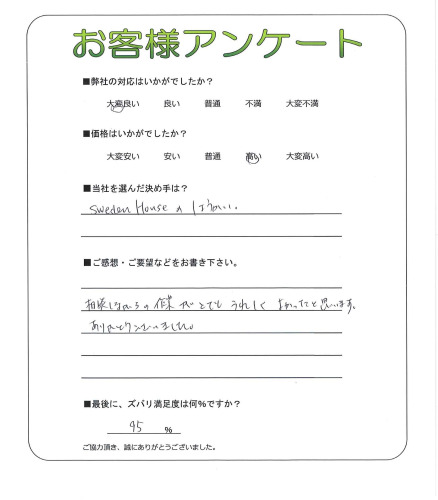 お客様アンケート
■弊社の対応はいかがでしたか？
大変良い 良い 普通 不満 大変不満
■価格はいかがでしたか？
大変安い 安い 普通 高い 大変高い
■当社を選んだ決め手は？
Sweden House の
■ご感想・ご要望などをお書き下さい。
相談しながらの作業がとてもうれしく よかったと思います。
ありがとうございました。
■最後に、ズバリ満足度は何%ですか？
95 %
ご協力頂き、誠にありがとうございました。